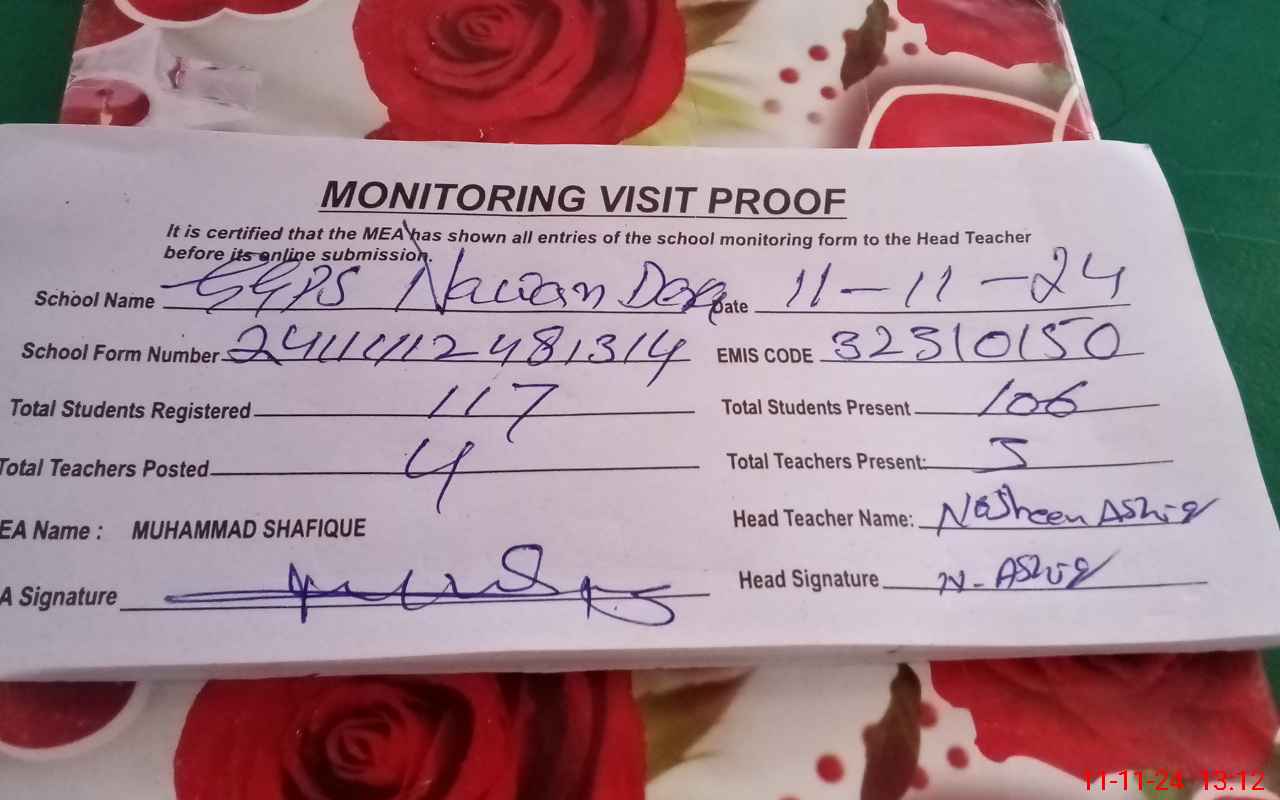 MONITORING VISIT PROOF
It is certified that the MEA has shown all entries of the school monitoring form to the Head Teacher
before its online submission.
School Name GGPS Nawan Date 11-11-24
School Form Number 2411111248 1314 EMIS CODE 32310150
Total Students Registered 117 Total Students Present 106
Total Teachers Posted 4 Total Teachers Present:
EA Name : MUHAMMAD SHAFIQUE Head Teacher Name: Nosheen Ashiq
A Signature Head Signature N. Ashiq
11-11-24 13:12